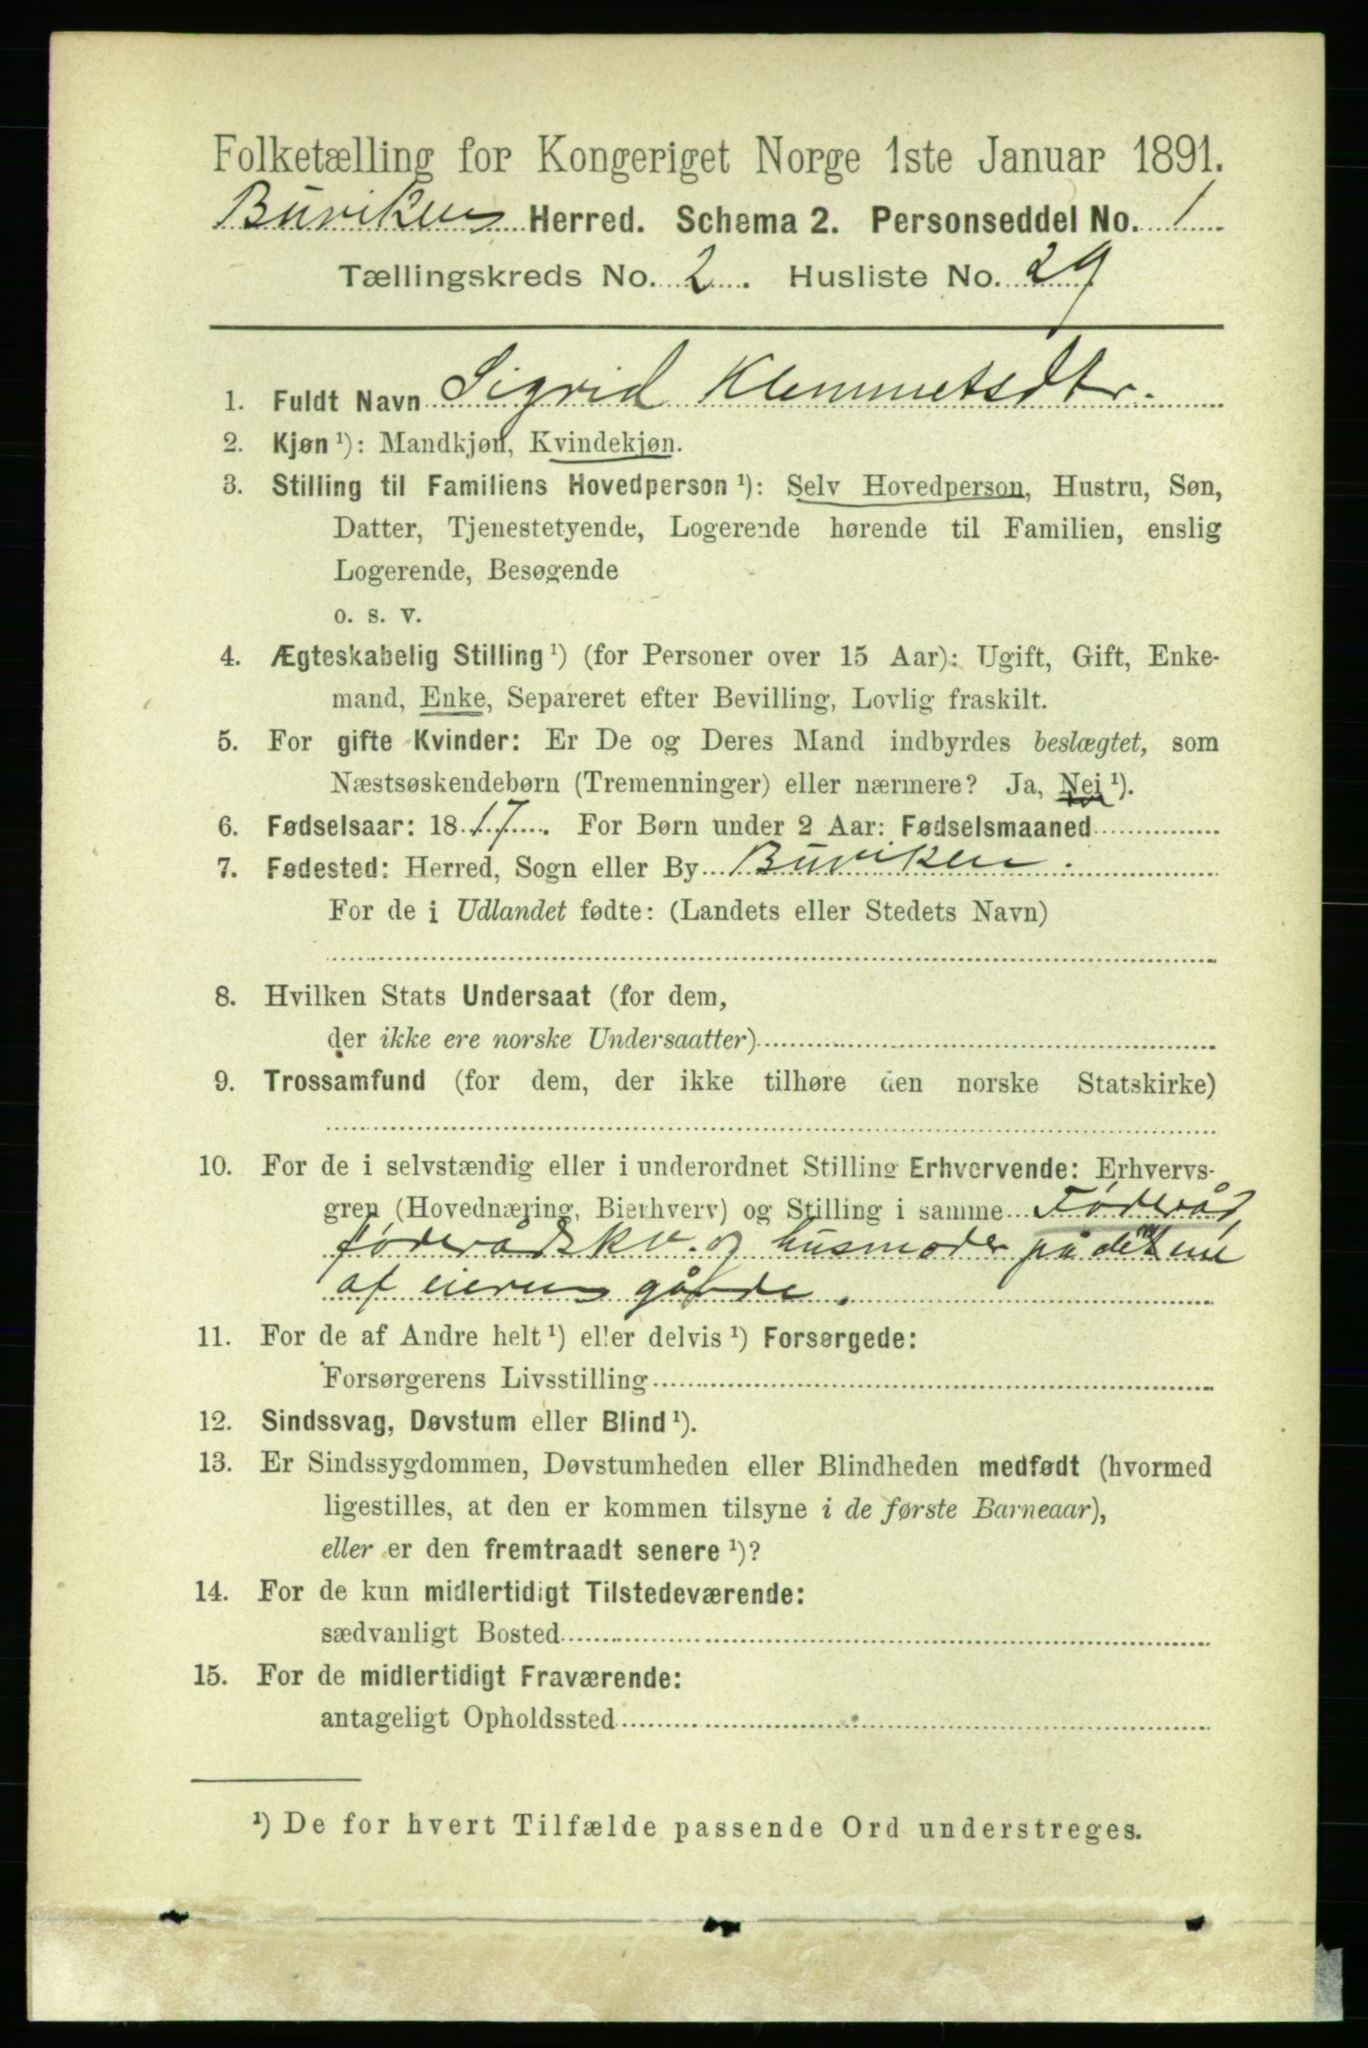 Folketælling for Kongeriget Norge 1ste Januar 1891.
Buvikens Herred. Schema 2. Personseddel No. 1
Tællingskreds No. 2. Husliste No. 29
1. Fuldt Navn Sigrid Klemmetsdtr.
2. Kjøn ¹): Mandkjøn, Kvindekjøn.
3. Stilling til Familiens Hovedperson ¹): Selv Hovedperson, Hustru, Søn,
Datter, Tjenestetyende, Logerende hørende til Familien, enslig
Logerende, Besøgende
o. s. v.
4. Ægteskabelig Stilling ¹) (for Personer over 15 Aar): Ugift, Gift, Enke-
mand, Enke, Separeret efter Bevilling, Lovlig fraskilt.
5. For gifte Kvinder: Er De og Deres Mand indbyrdes beslægtet, som
Næstsøskendebørn (Tremenninger) eller nærmere? Ja, Nei ¹).
6. Fødselsaar: 1817. For Børn under 2 Aar: Fødselsmaaned
7. Fødested: Herred, Sogn eller By Buviken.
For de i Udlandet fødte: (Landets eller Stedets Navn)
8. Hvilken Stats Undersaat (for dem,
der ikke ere norske Undersaatter)
9. Trossamfund (for dem, der ikke tilhøre den norske Statskirke)
10. For de i selvstændig eller i underordnet Stilling Erhvervende: Erhvervs-
gren (Hovednæring, Bierhverv) og Stilling i samme Føderåd,
føderådskv. og husmoder på det ene
af eierens gårde.
11. For de af Andre helt ¹) eller delvis ¹) Forsørgede:
Forsørgerens Livsstilling
12. Sindssvag, Døvstum eller Blind ¹).
13. Er Sindssygdommen, Døvstumheden eller Blindheden medfødt (hvormed
ligestilles, at den er kommen tilsyne i de første Barneaar),
eller er den fremtraadt senere ¹)?
14. For de kun midlertidigt Tilstedeværende:
sædvanligt Bosted
15. For de midlertidigt Fraværende:
antageligt Opholdssted
¹) De for hvert Tilfælde passende Ord understreges.